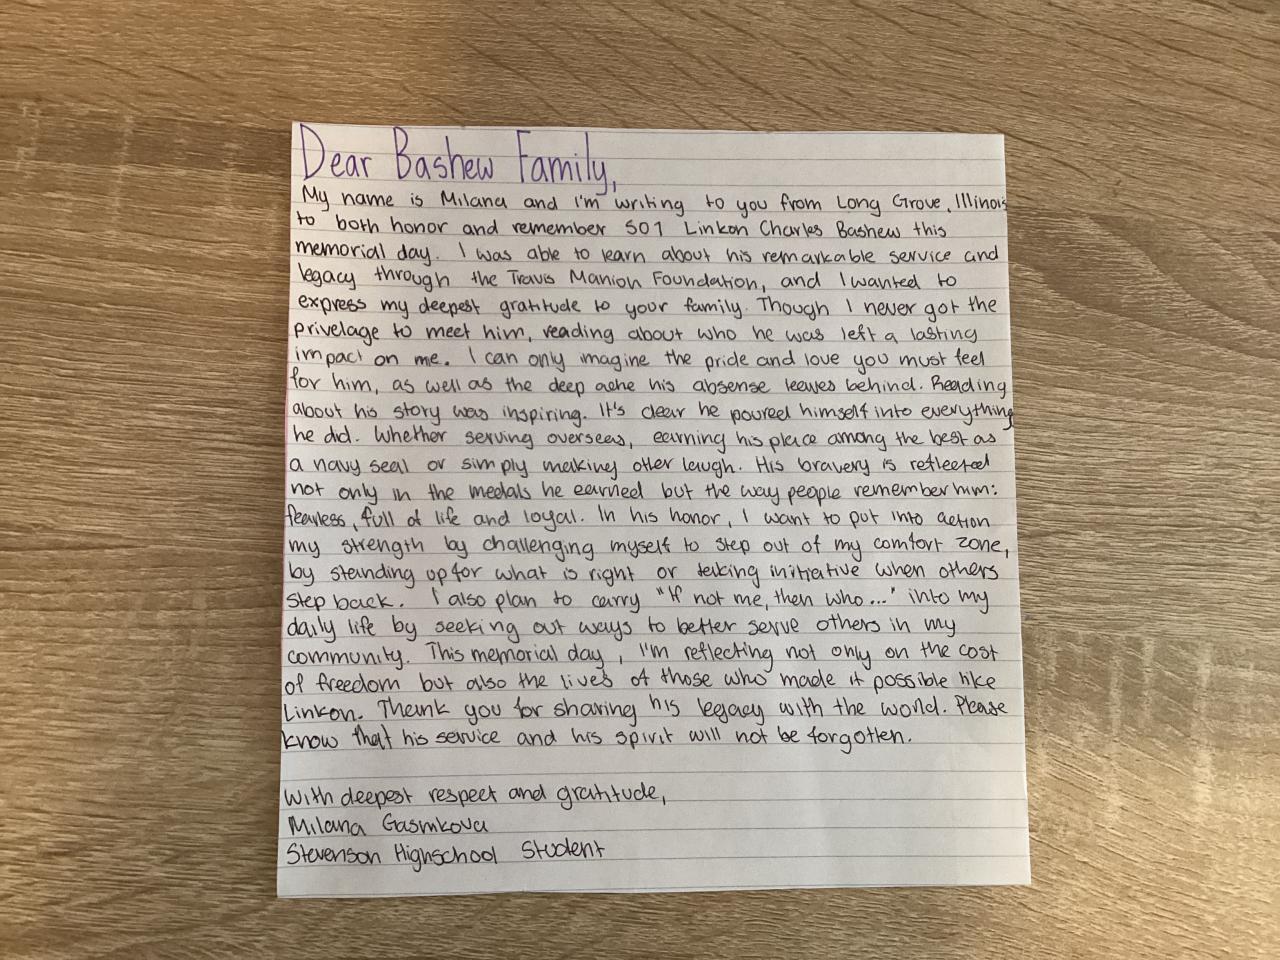 Dear Bashew Family,
My name is Milana and I'm writing to you from Long Grove, Illinois
to both honor and remember SO1 Linkon Charles Bashew this
memorial day. I was able to learn about his remarkable service and
legacy through the Travis Manion Foundation, and I wanted to
express my deepest gratitude to your family. Though I never got the
privelage to meet him, reading about who he was left a lasting
impact on me. I can only imagine the pride and love you must feel
for him, as well as the deep ache his absense leaves behind. Reading
about his story was inspiring. It's clear he poured himself into everything
he did. Whether serving overseas, earning his place among the best as
a navy seal or simply making other laugh. His bravery is reflected
not only in the medals he earned but the way people remember him:
fearless, full of life and loyal. In his honor, I want to put into action
my strength by challenging myself to step out of my comfort zone,
by standing up for what is right or taking initiative when others
step back. I also plan to carry "If not me, then who..." into my
daily life by seeking out ways to better serve others in my
community. This memorial day, I'm reflecting not only on the cost
of freedom but also the lives of those who made it possible like
Linkon. Thank you for sharing his legacy with the world. Please
know that his service and his spirit will not be forgotten.
With deepest respect and gratitude,
Milana Gasnikova
Stevenson Highschool Student